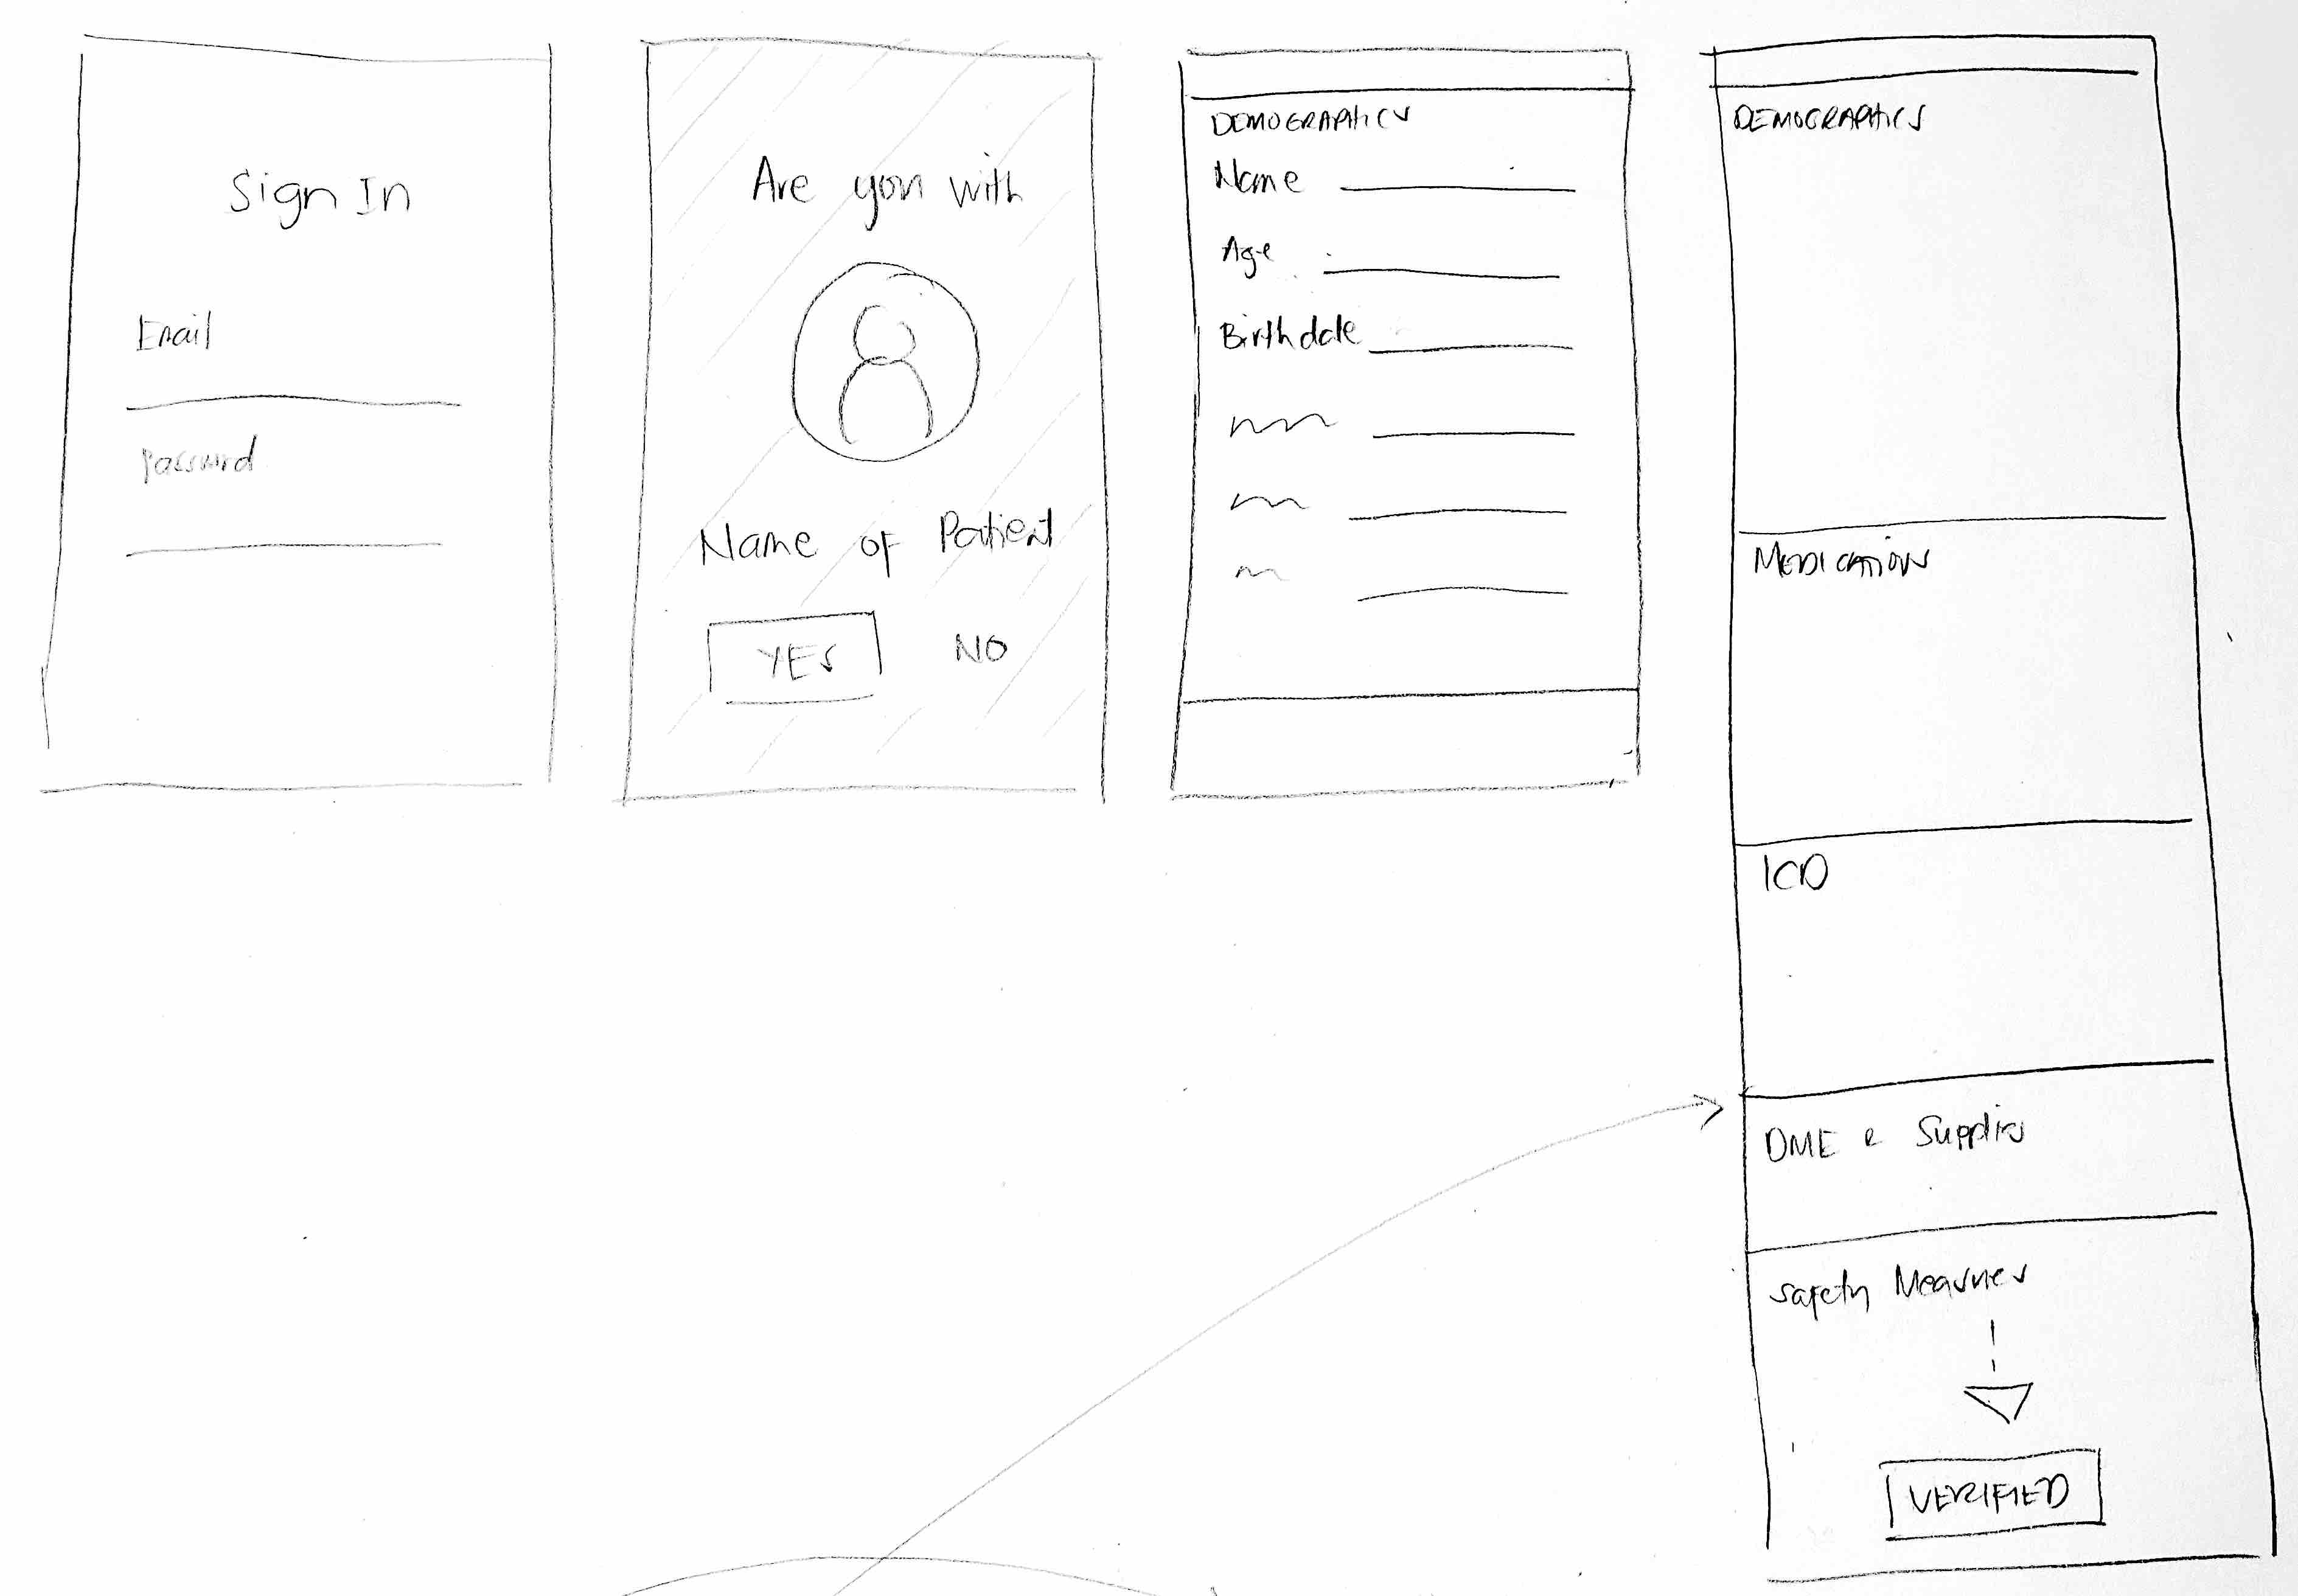 Sign In
Email
Password
Are you with
Name of Patient
YES NO
DEMOGRAPHICS
Name
Age
Birthdate
DEMOGRAPHICS
MEDICATIONS
ICD
DME & Supplies
Safety Measures
VERIFIED